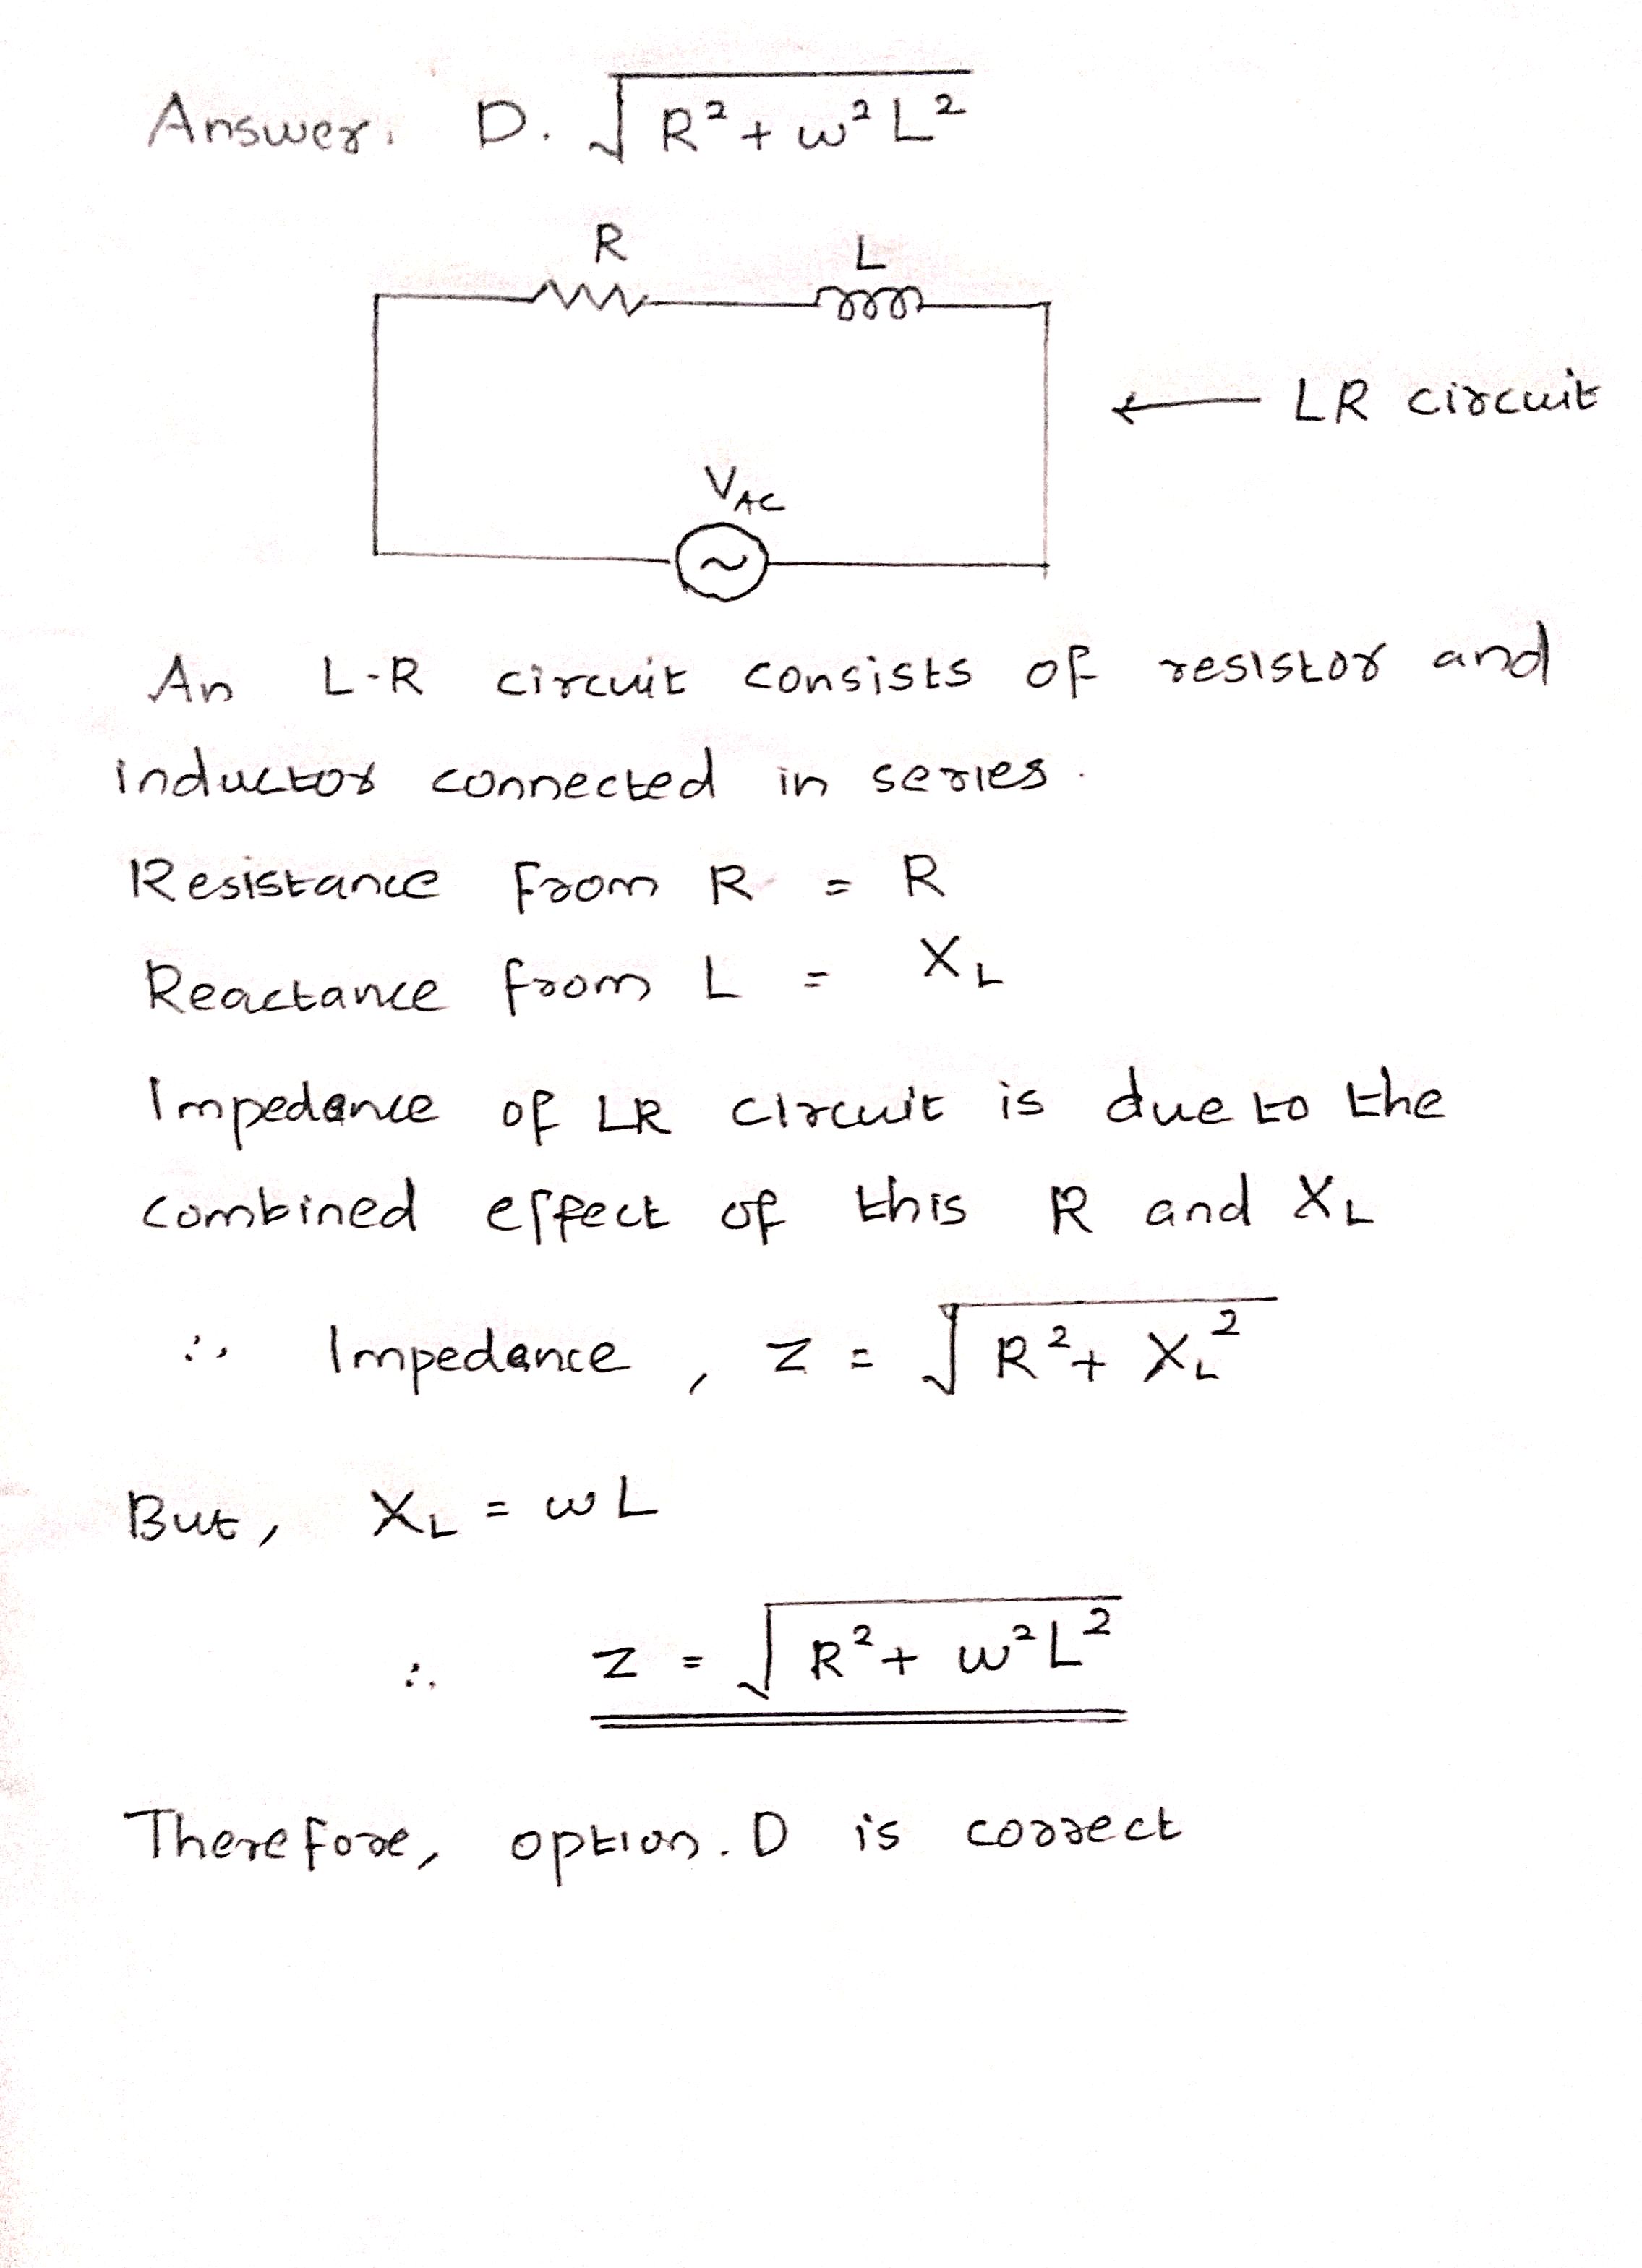 Answer. D. √R²+ω²L²
R
L
← LR circuit
V_AC
~
An L-R circuit consists of resistor and
inductor connected in series.
Resistance from R = R
Reactance from L = X_L
Impedance of LR circuit is due to the
combined effect of this R and X_L
∴ Impedance, Z = √R²+X_L²
But, X_L = ωL
∴ Z = √R²+ω²L²
Therefore, option. D is correct